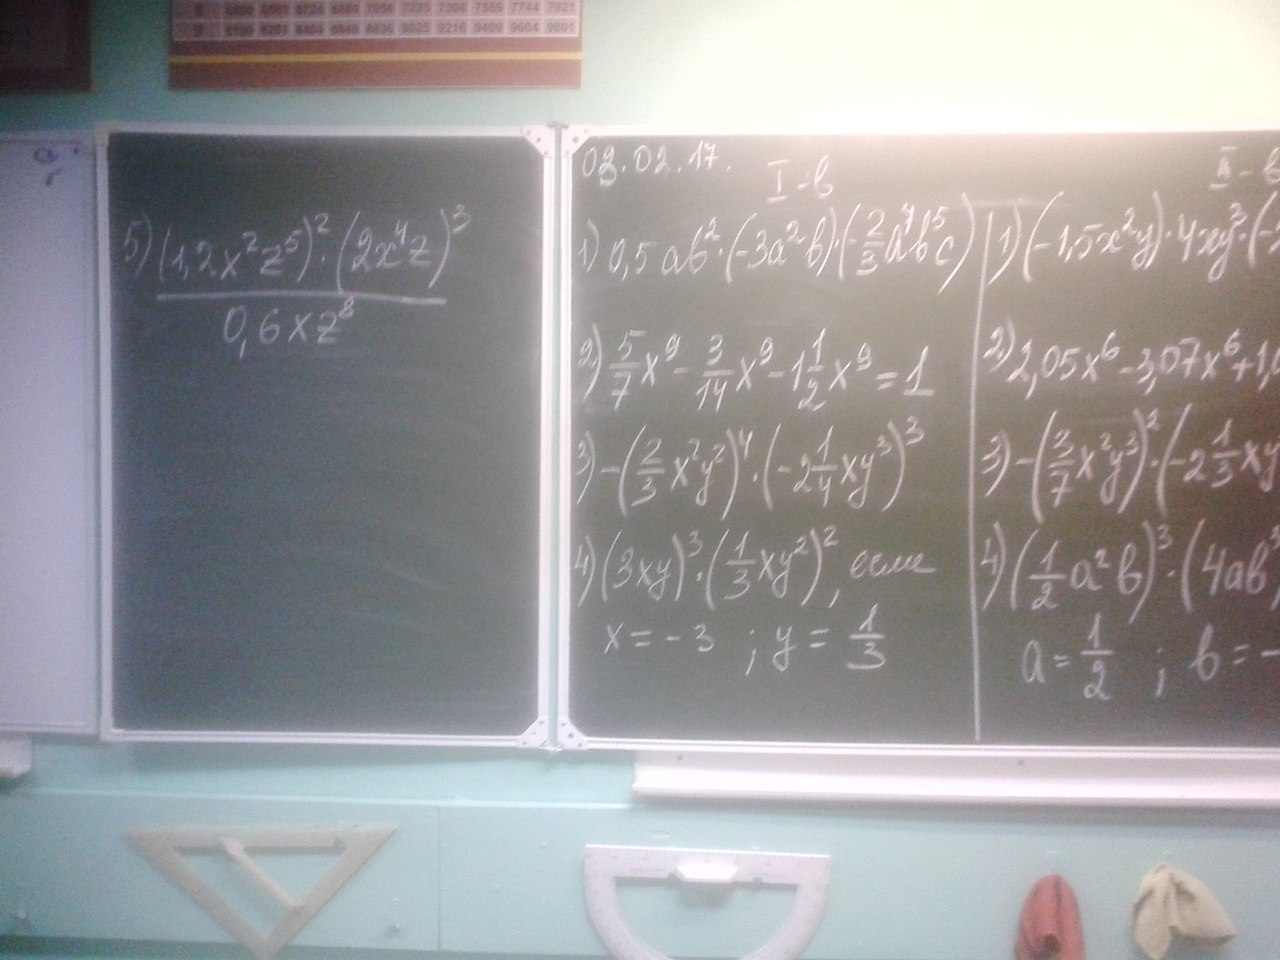 5) (1,2x²z⁵)² · (2x⁴z)³
0,6xz⁸
03.02.17.
I-в
1) 0,5ab² · (-3a²b) (-2/3 a⁴b⁵c)
2) 5/7 x⁹ - 3/14 x⁹ - 1 1/2 x⁹ = 1
3) -(2/3 x²y²)⁴ · (-2 1/4 xy³)³
4) (3xy)³ · (1/3 xy²)², если
x = -3 ; y = 1/3
II-в
1) (-1,5x²y) · 4xy³ · (-
2) 2,05x⁶ - 3,07x⁶ + 1,
3) -(3/7 x²y³)² · (-2 1/3 xy
4) (1/2 a²b)³ · (4ab³
a = 1/2 ; b = -